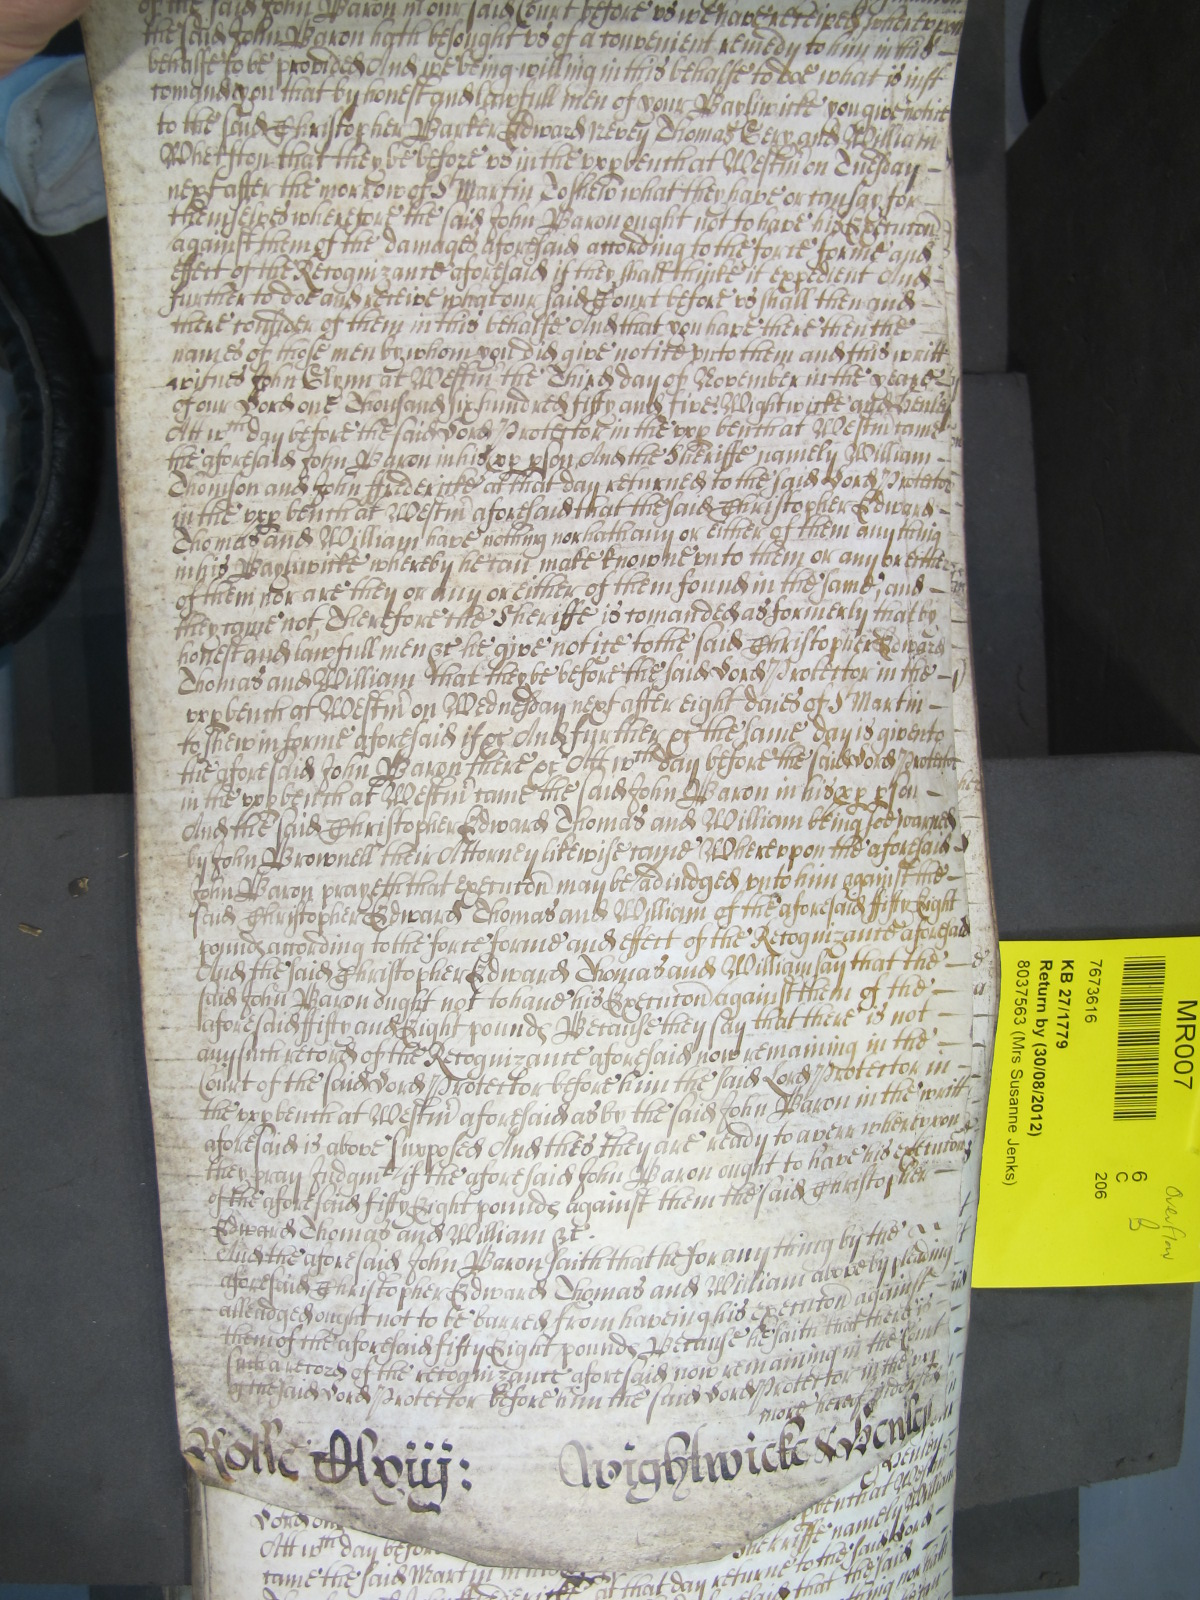 of the said John Baron in our said Court before vs we have receiped wherevpon
the said John Baron hath besought vs of a convenient remedy to him in this
behalfe to be provided And we being willing in this behalfe to doe what is iust
comand you that by honest and lawfull men of your Bayliwicke you give notice
to the said Christopher Barker Edward Thomas and William
Whetston that they be before vs in the vpp bench at Westm on Tuesday
next after the morrow of St Martin To shew what they have or can say for
themselves wherefore the said John Baron ought not to have his Execucon
against them of the damages aforesaid according to the force forme and
effect of the Recognizance aforesaid if they shall thinke it expedient And
further to doe and receive what our said Court before vs shall then and
there consider of them in this behalfe And that you have there then the
names of those men by whom you did give notice vnto them and this writt
witnes John Glynn at Westm the Third day of November in the yeare
of our Lord one Thousand six hundred fifty and five: Wightwicke and Henley
Att wch day before the said Lord Protector in the vpp bench at Westm came
the aforesaid John Baron in his pp pson And the Sheriffe namely William
Thomson and John Fredericke at that day returned to the said Lord Protector
in the vpp bench at Westm aforesaid that the said Christopher Edward
Thomas and William have nothing nor hath any or either of them any thing
in his Bayliwicke whereby he can make knowne vnto them or any or either
of them nor are they or any or either of them found in the same, and
they came not Therefore the Sheriffe is comanded as formerly that by
honest and lawfull men &c he give notice to the said Christopher Edward
Thomas and William that they be before the said Lord Protector in the
vpp bench at Westm on Wednesday next after eight daies of St Martin
to shew in forme aforesaid if &c And further &c the same day is given to
the aforesaid John Baron there &c Att wch day before the said Lord Protector
in the vpp bench at Westm came the said John Baron in his pp pson
And the said Christopher Edward Thomas and William being soe warned
by John Brownell their Attorney likewise came Wherevpon the aforesaid
John Baron prayeth that execucon may be adiudged vnto him against the
said Christopher Edward Thomas and William of the aforesaid fifty Eight
pounds according to the force forme and effect of the Recognizance aforesaid
And the said Christopher Edward Thomas and William say that the
said John Baron ought not to have his Execucon against them of the
aforesaid fifty and Eight pounds Because they say that there is not
any such record of the Recognizance aforesaid now remaining in the
Court of the said Lord Protector before him the said Lord Protector in
the vpp bench at Westm aforesaid as by the said John Baron in the writt
aforesaid is above supposed And this they are ready to averr wherevpon
they pray iudgmt if the aforesaid John Baron ought to have his execucon
of the aforesaid fifty Eight pounds against them the said Christopher
Edward Thomas and William &c.
And the aforesaid John Baron saith that he for any thing by the
aforesaid Christopher Edward Thomas and William above by pleading
alleadged ought not to be barred from haveing his execucon against
them of the aforesaid fifty Eight pounds Because he saith that there is
such a record of the recognizance aforesaid now remaining in the Court
of the said Lord Protector before him the said Lord Protector in the vpp
more hereof
Rolle
Wightwicke & Henley
Henley
Lord one
vpp bench at Westm
Att wch day before
Sherriffe namely William
came the said Martin
at that day returne to the said Lord
said that the said
MR007
6
C
206
Overflow
7673616
KB 27/1779
Return by (30/08/2012)
8037563 (Mrs Susanne Jenks)